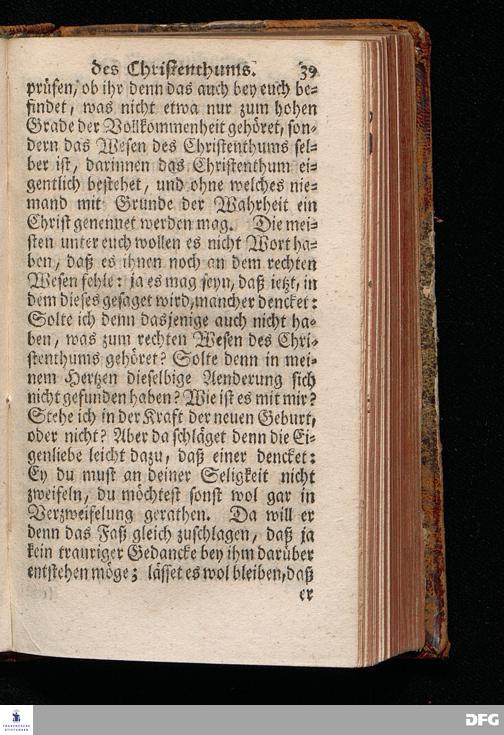 des Christenthums. 39
prüfen, ob ihr denn das auch bey euch be-
findet, was nicht etwa nur zum hohen
Grade der Vollkommenheit gehöret, son-
dern das Wesen des Christenthums sel-
ber ist, darinnen das Christenthum ei-
gentlich bestehet, und ohne welches nie-
mand mit Grunde der Wahrheit ein
Christ genennet werden mag. Die mei-
sten unter euch wollen es nicht Wort ha-
ben, daß es ihnen noch an dem rechten
Wesen fehle: ja es mag seyn, daß ietzt, in
dem dieses gesaget wird, mancher dencket:
Solte ich denn dasjenige auch nicht ha-
ben, was zum rechten Wesen des Chri-
stenthums gehöret? Solte denn in mei-
nem Hertzen dieselbige Aenderung sich
nicht gefunden haben? Wie ist es mit mir?
Stehe ich in der Kraft der neuen Geburt,
oder nicht? Aber da schläget denn die Ei-
genliebe leicht dazu, daß einer dencket:
Ey du must an deiner Seligkeit nicht
zweifeln, du möchtest sonst wol gar in
Verzweifelung gerathen. Da will er
denn das Faß gleich zuschlagen, daß ja
kein trauriger Gedancke bey ihm darüber
entstehen möge; lässet es wol bleiben, daß
er
FRANCKESCHE
STIFTUNGEN
DFG